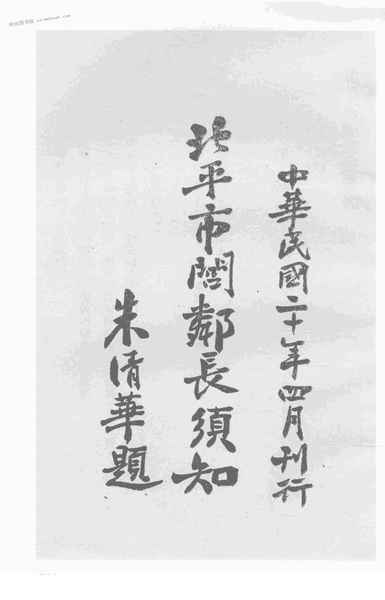 中華民國二十年四月刊行
北平市閭鄰長須知
朱清華題